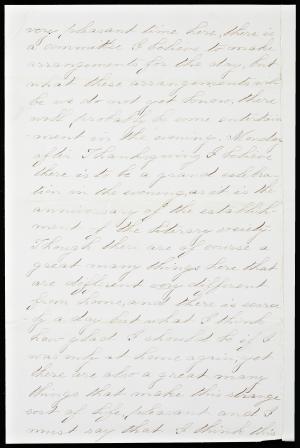 very pleasant time here, there is
a committee I believe to make
arrangements for the day, but
what these arrangements will
be we do not yet know, there
will probably be some entertain
-ment in the evening. Monday
after Thanksgiving I believe
there is to be a grand celebra-
tion in the evening, as it is the
anniversary of the establish-
ment of the literary society.
Though there are of course a
great many things here that
are different very different
from home, and there is scarce
ly a day but what I think
how glad I should be if I
was only at home again, yet
there are also a great many
things that make this strange
sort of life pleasant and I
must say that I think this